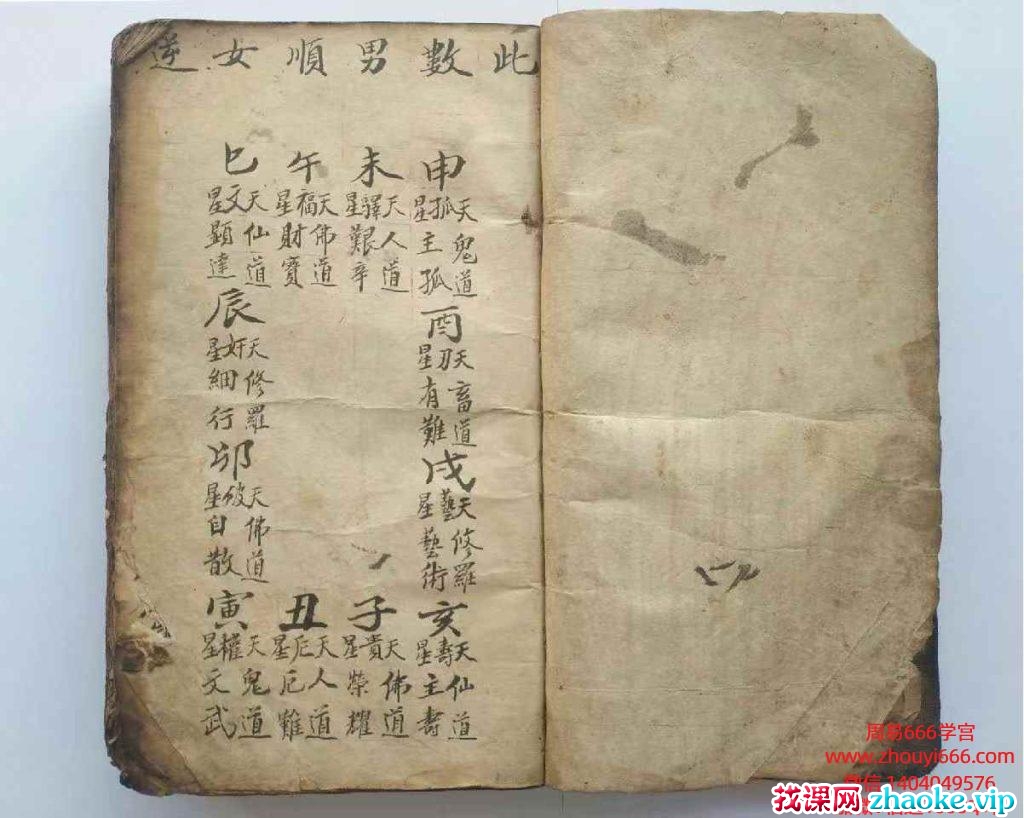 此數男順女逆
申
天孤星
鬼道
主孤
酉
天刃星
畜道
有難
戌
天藝星
修羅
藝術
亥
天壽星
仙道
主壽
未
天驛星
人道
艱辛
子
天貴星
佛道
榮耀
午
天福星
佛道
財寶
丑
天厄星
人道
厄難
巳
天文星
仙道
顯達
辰
天奸星
修羅
細行
卯
天破星
佛道
自散
寅
天權星
鬼道
文武
周易666学宫
www.zhouyi666.com
微信 1404049576
找课网 zhaoke.vip